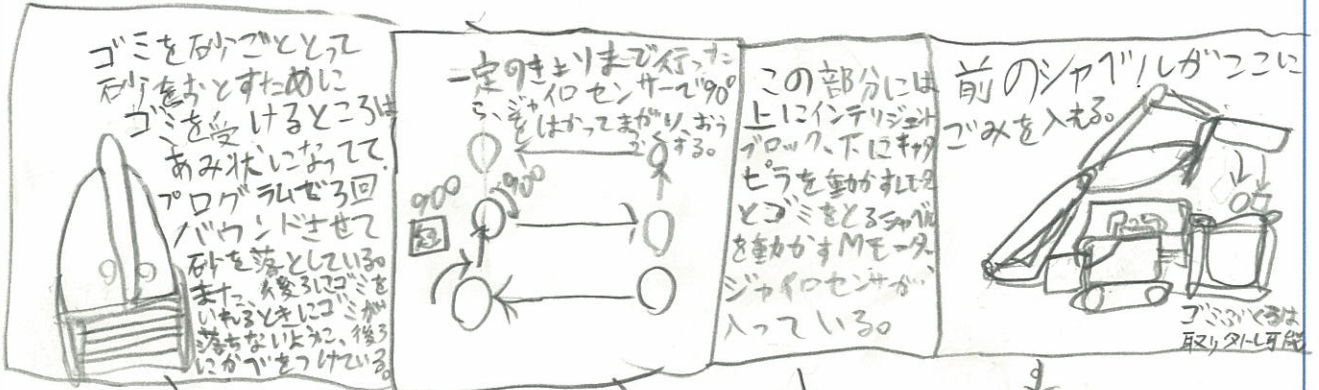 ゴミを砂ごととって
砂をおとすために
ゴミを受けるところは
あみ状になってて
プログラムで3回
バウンドさせて
砂を落としている。
また、後ろにゴミを
いれるときにゴミが
落ちないように、後ろ
にかべをつけている。
一定のきょりまで行った
ら、ジャイロセンサーで90°
をはかってまがり、おう
ふくする。
90°
90°
この部分には
上にインテリジェント
ブロック、下にキャタ
ピラを動かすLモーター
とゴミをとるシャベル
を動かすMモーター
ジャイロセンサが
入っている。
前のシャベルがここに
ごみを入れる。
ゴミぶくろは
取り外し可能